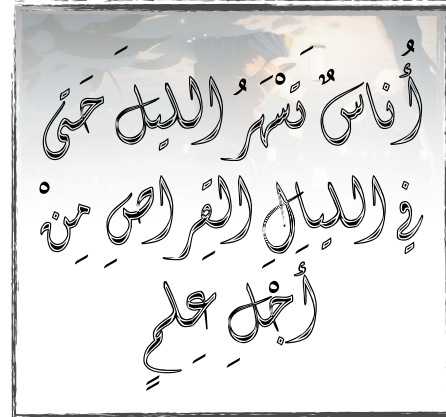 أُناسٌ تَسْهَرُ الليلَ حَتى
في الليالِ القِراصِ مِنْ
أَجْلِ عِلمٍ